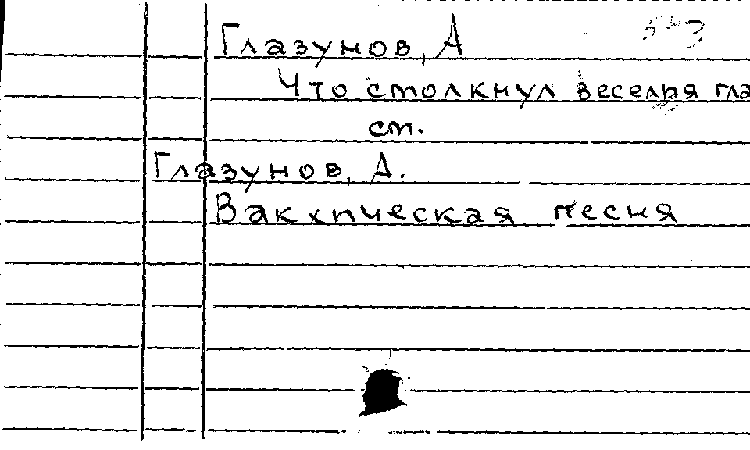 Глазунов, А
Что столкнул веселья гла
см.
Глазунов, А.
Вакхическая песня